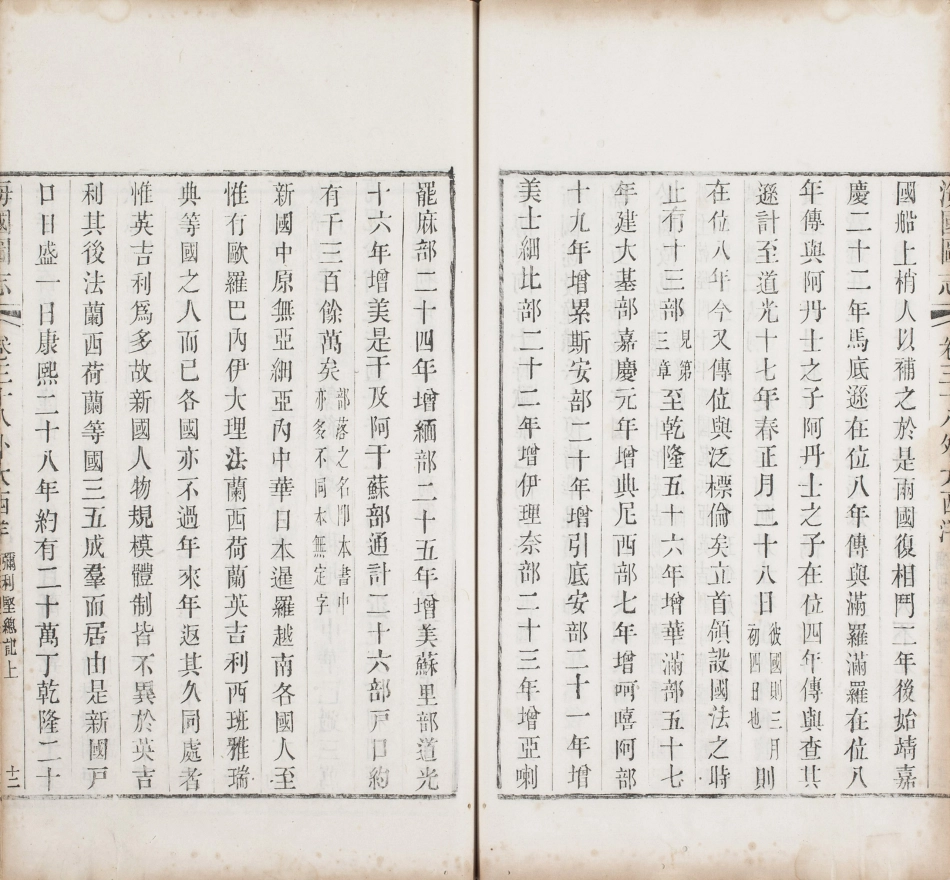 國船上梢人以補之於是兩國復相鬥二年後始靖嘉
慶二十二年馬底遜在位八年傳與滿羅滿羅在位八
年傳與阿丹士之子阿丹士之子在位四年傳與查其
遜計至道光十七年春正月二十八日彼國則三月初四日也則
在位八年今又傳位與泛標倫矣立首領設國法之時
止有十三部見第三章至乾隆五十六年增華滿部五十七
年建大基部嘉慶元年增典尼西部七年增呵嘻阿部
十九年增累斯安部二十年增引底安部二十一年增
美士細比部二十二年增伊理奈部二十三年增亞喇
罷麻部二十四年增緬部二十五年增美蘇里部道光
十六年增美是干及阿干蘇部通計二十六部戶口約
有千三百餘萬矣部落之名卽本書中亦多不同本無定字
新國中原無亞細亞內中華日本暹羅越南各國人至
惟有歐羅巴內伊大理法蘭西荷蘭英吉利西班雅瑞
典等國之人而已各國亦不過年來年返其久同處者
惟英吉利爲多故新國人物規模體制皆不異於英吉
利其後法蘭西荷蘭等國三五成羣而居由是新國戶
口日盛一日康熙二十八年約有二十萬丁乾隆二十
海國圖志 卷三十八 外大西洋 彌利堅總記上 十二